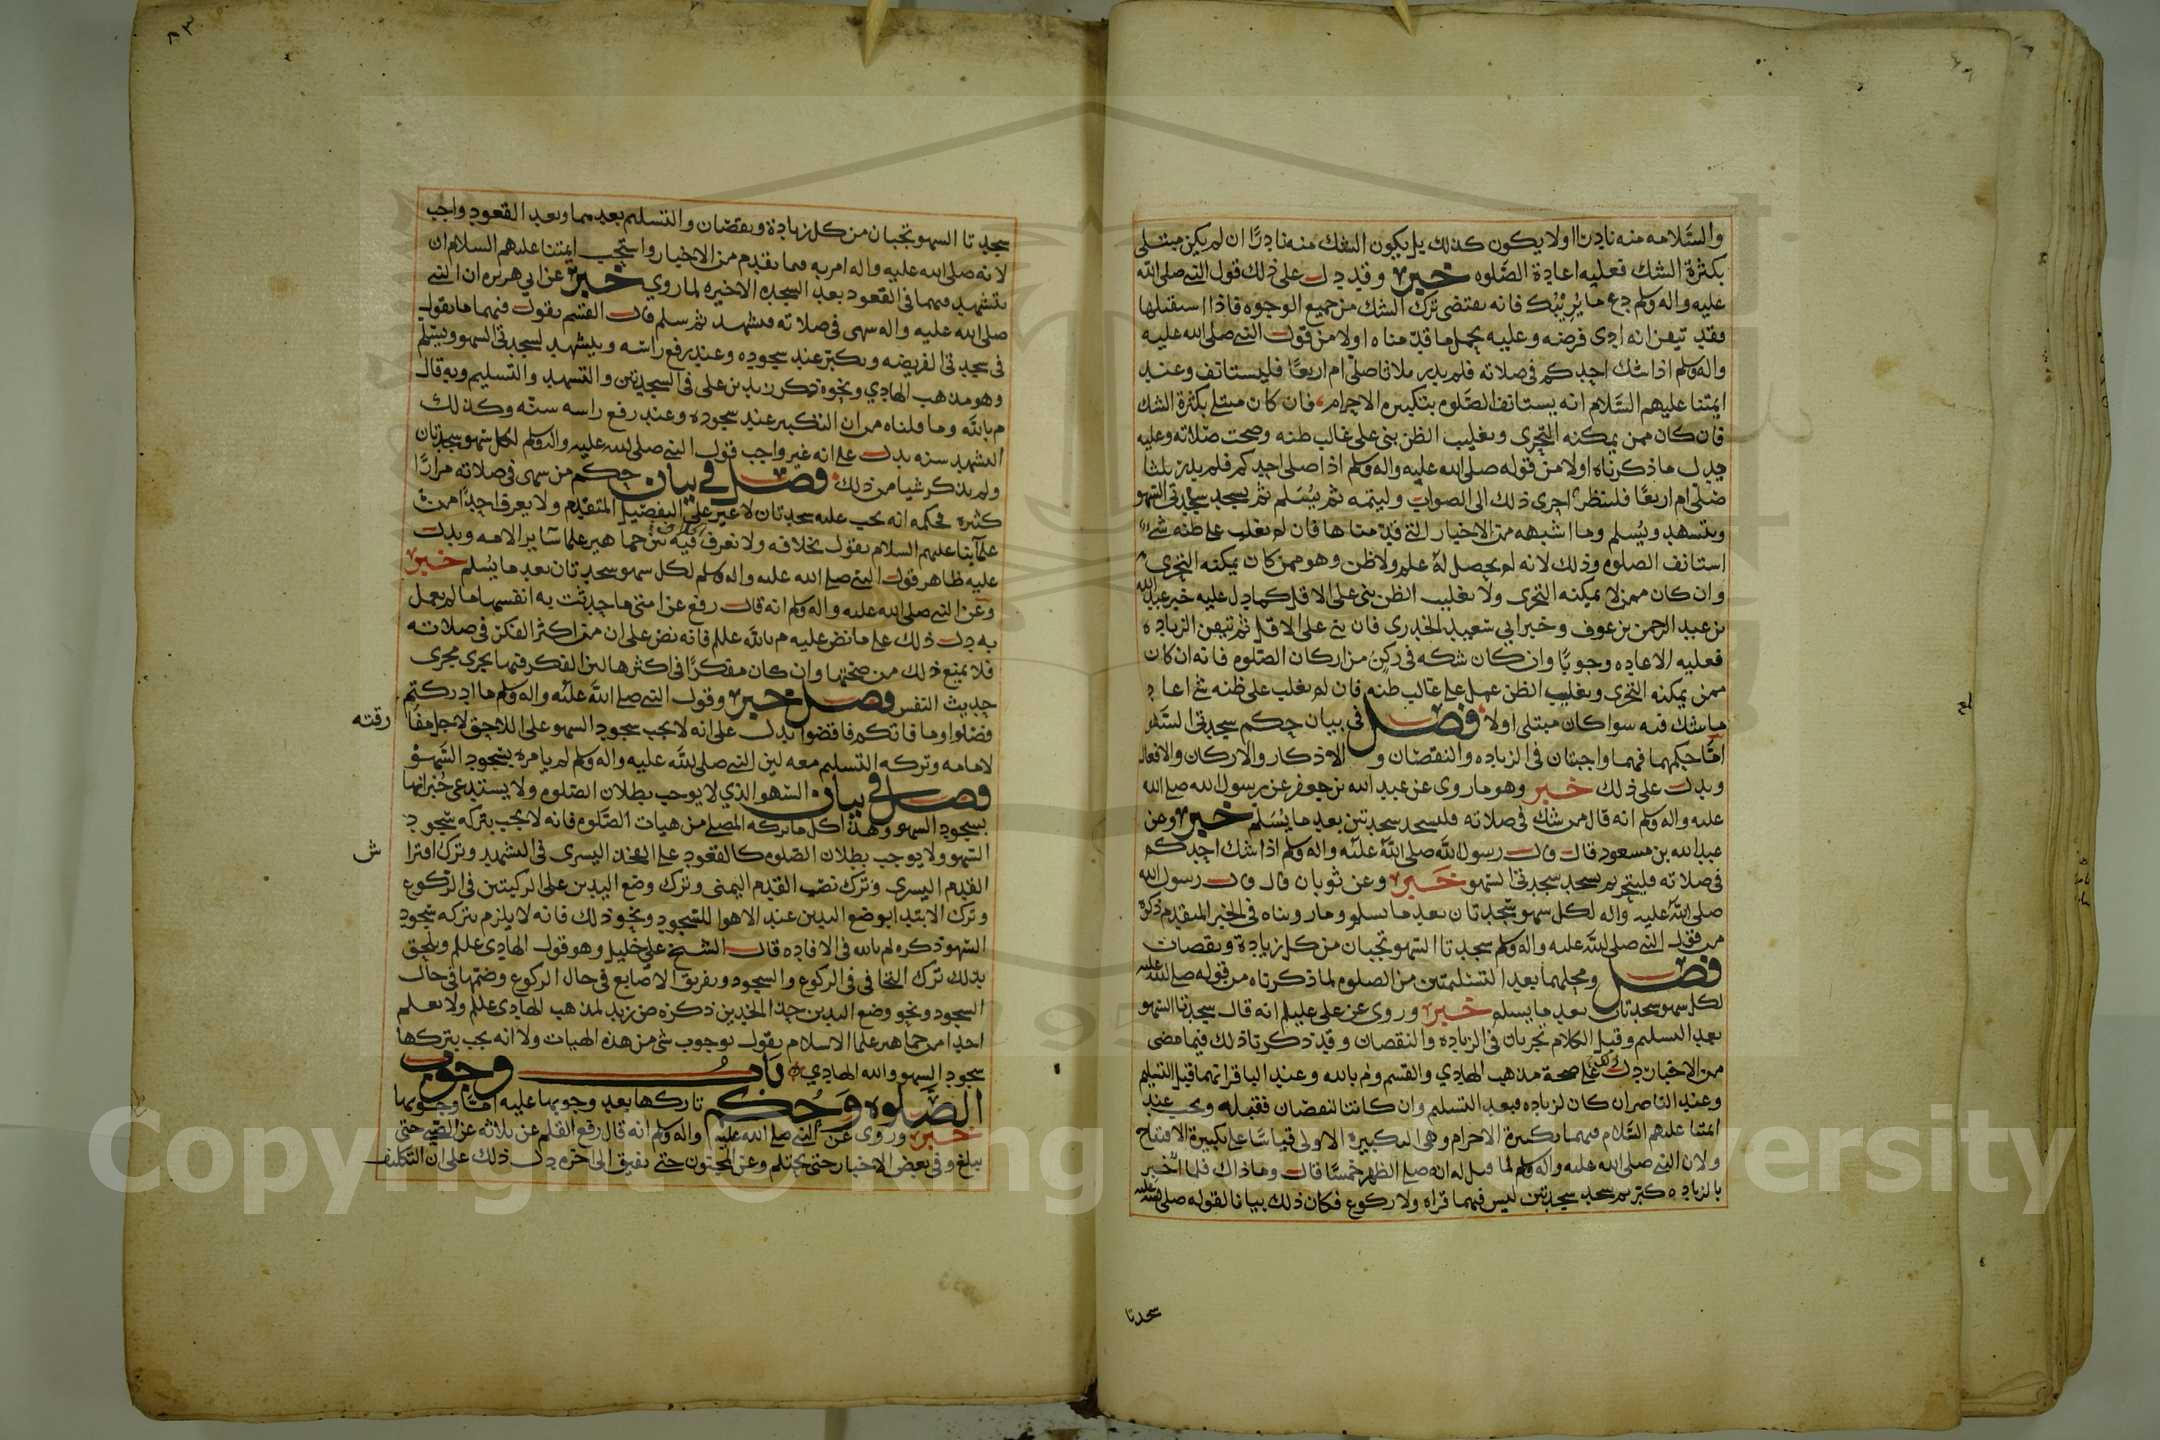 والسلامه منه نادرا اولا يكون كذلك بل يكون الشك منه نادرا ان لم يكن مبتلى
بكثرة الشك فعليه اعادة الصلوه خبر وقد دل على ذلك قول النبي صلى الله
عليه واله وسلم دع ما يريبك فانه يقتضى ترك الشك من جميع الوجوه فاذا استقبلها
فقد تيقن انه ادى فرضه وعليه يحمل ما قدمناه اولا من قول النبي صلى الله عليه
واله وسلم اذا شك احدكم في صلاته فلم يدر ثلاثا صلى ام اربعا فليستانف وعند
ايمتنا عليهم السلام انه يستانف الصلوه بتكبيره الاحرام فان كان مبتلى بكثرة الشك
فان كان ممن يمكنه التحرى ويغلب الظن بنى على غالب ظنه وصحت صلاته وعليه
يدل ما ذكرناه اولا من قوله صلى الله عليه واله وسلم اذا صلى احدكم فلم يدر ثلثا
صلى ام اربعا فلينظر احرى ذلك الى الصواب وليتمه ثم يسلم ثم يسجد سجدتي السهو
ويتشهد ويسلم وما اشبهه من الاخبار التي قدمناها فان لم يغلب على ظنه شيء
استانف الصلوه وذلك لانه لم يحصل له علم ولا ظن وهو ممن كان يمكنه التحرى
وان كان ممن لا يمكنه التحرى ولا يغلب الظن بنى على الاقل كما دل عليه خبر عبد الله
بن عبد الرحمن بن عوف وخبر ابي سعيد الخدرى فان بنى على الاقل ثم تيقن الزياده
فعليه الاعاده وجوبا وان كان شكه في ركن من اركان الصلوه فانه ان كان
ممن يمكنه التحرى ويغلب الظن عمل على غالب ظنه فان لم يغلب على ظنه شي اعاد
ما شك فيه سوا كان مبتلى اولا فصل في بيان حكم سجدتي السهو
اما حكمهما فهما واجبتان في الزياده والنقصان و الاذكار والاركان والافعال
ويدل على ذلك خبر وهو ما روى عن عبد الله بن جعفر عن رسول الله صلى الله
عليه واله وسلم انه قال من شك في صلاته فليسجد سجدتين بعد ما يسلم خبر وعن
عبد الله بن مسعود قال قال رسول الله صلى الله عليه واله وسلم اذا شك احدكم
في صلاته فليتحر ثم يسجد سجدتي السهو خبر وعن ثوبان قال قال رسول الله
صلى الله عليه واله لكل سهو سجدتان بعد ما يسلم وما رويناه في الخبر المتقدم ذكره
من قول النبي صلى الله عليه واله وسلم سجدتا السهو تجبان من كل زيادة ونقصان
فصل ومحلهما بعد التسليمتين من الصلوه لما ذكرناه من قوله صلى الله عليه
لكل سهو سجدتان بعد ما يسلم خبر وروى عن علي عليلم انه قال سجدتا السهو
بعد التسليم وقبل الكلام تجزيان في الزياده والنقصان وقد ذكرنا ذلك فيما مضى
من الاخبار دل ذلك على صحة مذهب الهادي والقسم وم بالله وعند الباقر انهما قبل التسليم
وعند الناصر ان كان لزياده فبعد التسليم وان كانتا لنقصان فقبله ويجب عند
ايمتنا عليهم السلام فيهما تكبيرة الاحرام وهي التكبيرة الاولى قياسا على تكبيرة الافتتاح
ولان النبي صلى الله عليه واله وسلم لما قيل له انه صلى الظهر خمسا قال وما ذاك فلما اخبر
بالزياده كبر ثم سجد سجدتين ليس فيهما قراه ولا ركوع فكان ذلك بيانا لقوله صلى الله عليه
سجدتا
٨٣
سجدتا السهو تجبان من كل زيادة ونقصان والتسليم بعدهما وبعد القعود واجب
لانه صلى الله عليه واله امر به فيما تقدم من الاخبار واستحب ايمتنا عليهم السلام ان
يتشهد فيهما في القعود بعد السجده الاخيره لما روي خبر عن ابي هريره ان النبي
صلى الله عليه واله سهى في صلاته فتشهد ثم سلم قال القسم يقول فيهما ما يقول
في سجدتي الفريضه ويكبر عند سجوده وعند رفع راسه ويتشهد لسجدتي السهو ويسلم
وهو مذهب الهادي ونحوه ذكر زيد بن على في السجدتين والتشهد والتسليم وبه قال
م بالله وما قلناه من ان التكبير عند سجوده وعند رفع راسه سنه وكذلك
التشهد سنه يدل على انه غير واجب قول النبي صلى الله عليه واله وسلم لكل سهو سجدتان
ولم يذكر شيا من ذلك فصل في بيان حكم من سهى في صلاته مرارا
كثيره فحكمه انه يجب عليه سجدتان لا غير على التفصيل المتقدم ولا يعرف احدا من
علمآينا عليهم السلام يقول بخلافه ولا نعرف فيه من جماهير علما ساير الامه ويدل
عليه ظاهر قول النبي صلى الله عليه واله وسلم لكل سهو سجدتان بعد ما يسلم خبر
وعن النبي صلى الله عليه واله وسلم انه قال رفع عن امتي ما حدثت به انفسها ما لم يعمل
به دل ذلك على ما نص عليه م بالله عللم فانه نص على ان من اكثر الفكر في صلاته
فلا يمنع ذلك من صحتها وان كان مفكرا في اكثرها لان الفكر فيها يجري مجرى
حديث النفس فصل خبر وقول النبي صلى الله عليه واله وسلم ما ادركتم
فصلوا وما فاتكم فاقضوا يدل على انه لا يجب سجود السهو على اللاحق لاجل مفا
رقته
لامامه وتركه التسليم معه لان النبي صلى الله عليه واله وسلم لم يامره بسجود السهو
فصل في بيان السهو الذي لا يوجب بطلان الصلوه ولا يستدعى جبرانها
بسجود السهو وهذا كل ما تركه المصلي من هيات الصلوه فانه لا يجب بتركه سجود
السهو ولا يوجب بطلان الصلوه كالقعود على الفخذ اليسرى في التشهد وترك افترا
ش
القدم اليسرى وترك نصب القدم اليمنى وترك وضع اليدين على الركبتين في الركوع
وترك الابتدا بوضع اليدين عند الاهوا للسجود ونحو ذلك فانه لا يلزم بتركه سجود
السهو ذكره م بالله في الافاده قال الشيخ علي خليل وهو قول الهادي عللم ويلحق
بذلك ترك التخافي في الركوع والسجود وتفريق الاصابع في حال الركوع وضمها في حال
السجود ونحو وضع اليدين حذا الخدين ذكره ض زيد لمذهب الهادي عللم ولا نعلم
احدا من جماهير علما الاسلام يقول بوجوب شي من هذه الهيات ولا انه يجب بتركها
سجود السهو والله الهادي باب وجوب
الصلوه وحكم تاركها بعد وجوبها عليه اما وجوبها
خبر وروى عن النبي صلى الله عليه واله وسلم انه قال رفع القلم عن ثلاثه عن الصبي حتى
يبلغ وفي بعض الاخبار حتى يحتلم وعن المجنون حتى يفيق الى اخره دل ذلك على ان التكليف
Copyright © King
University